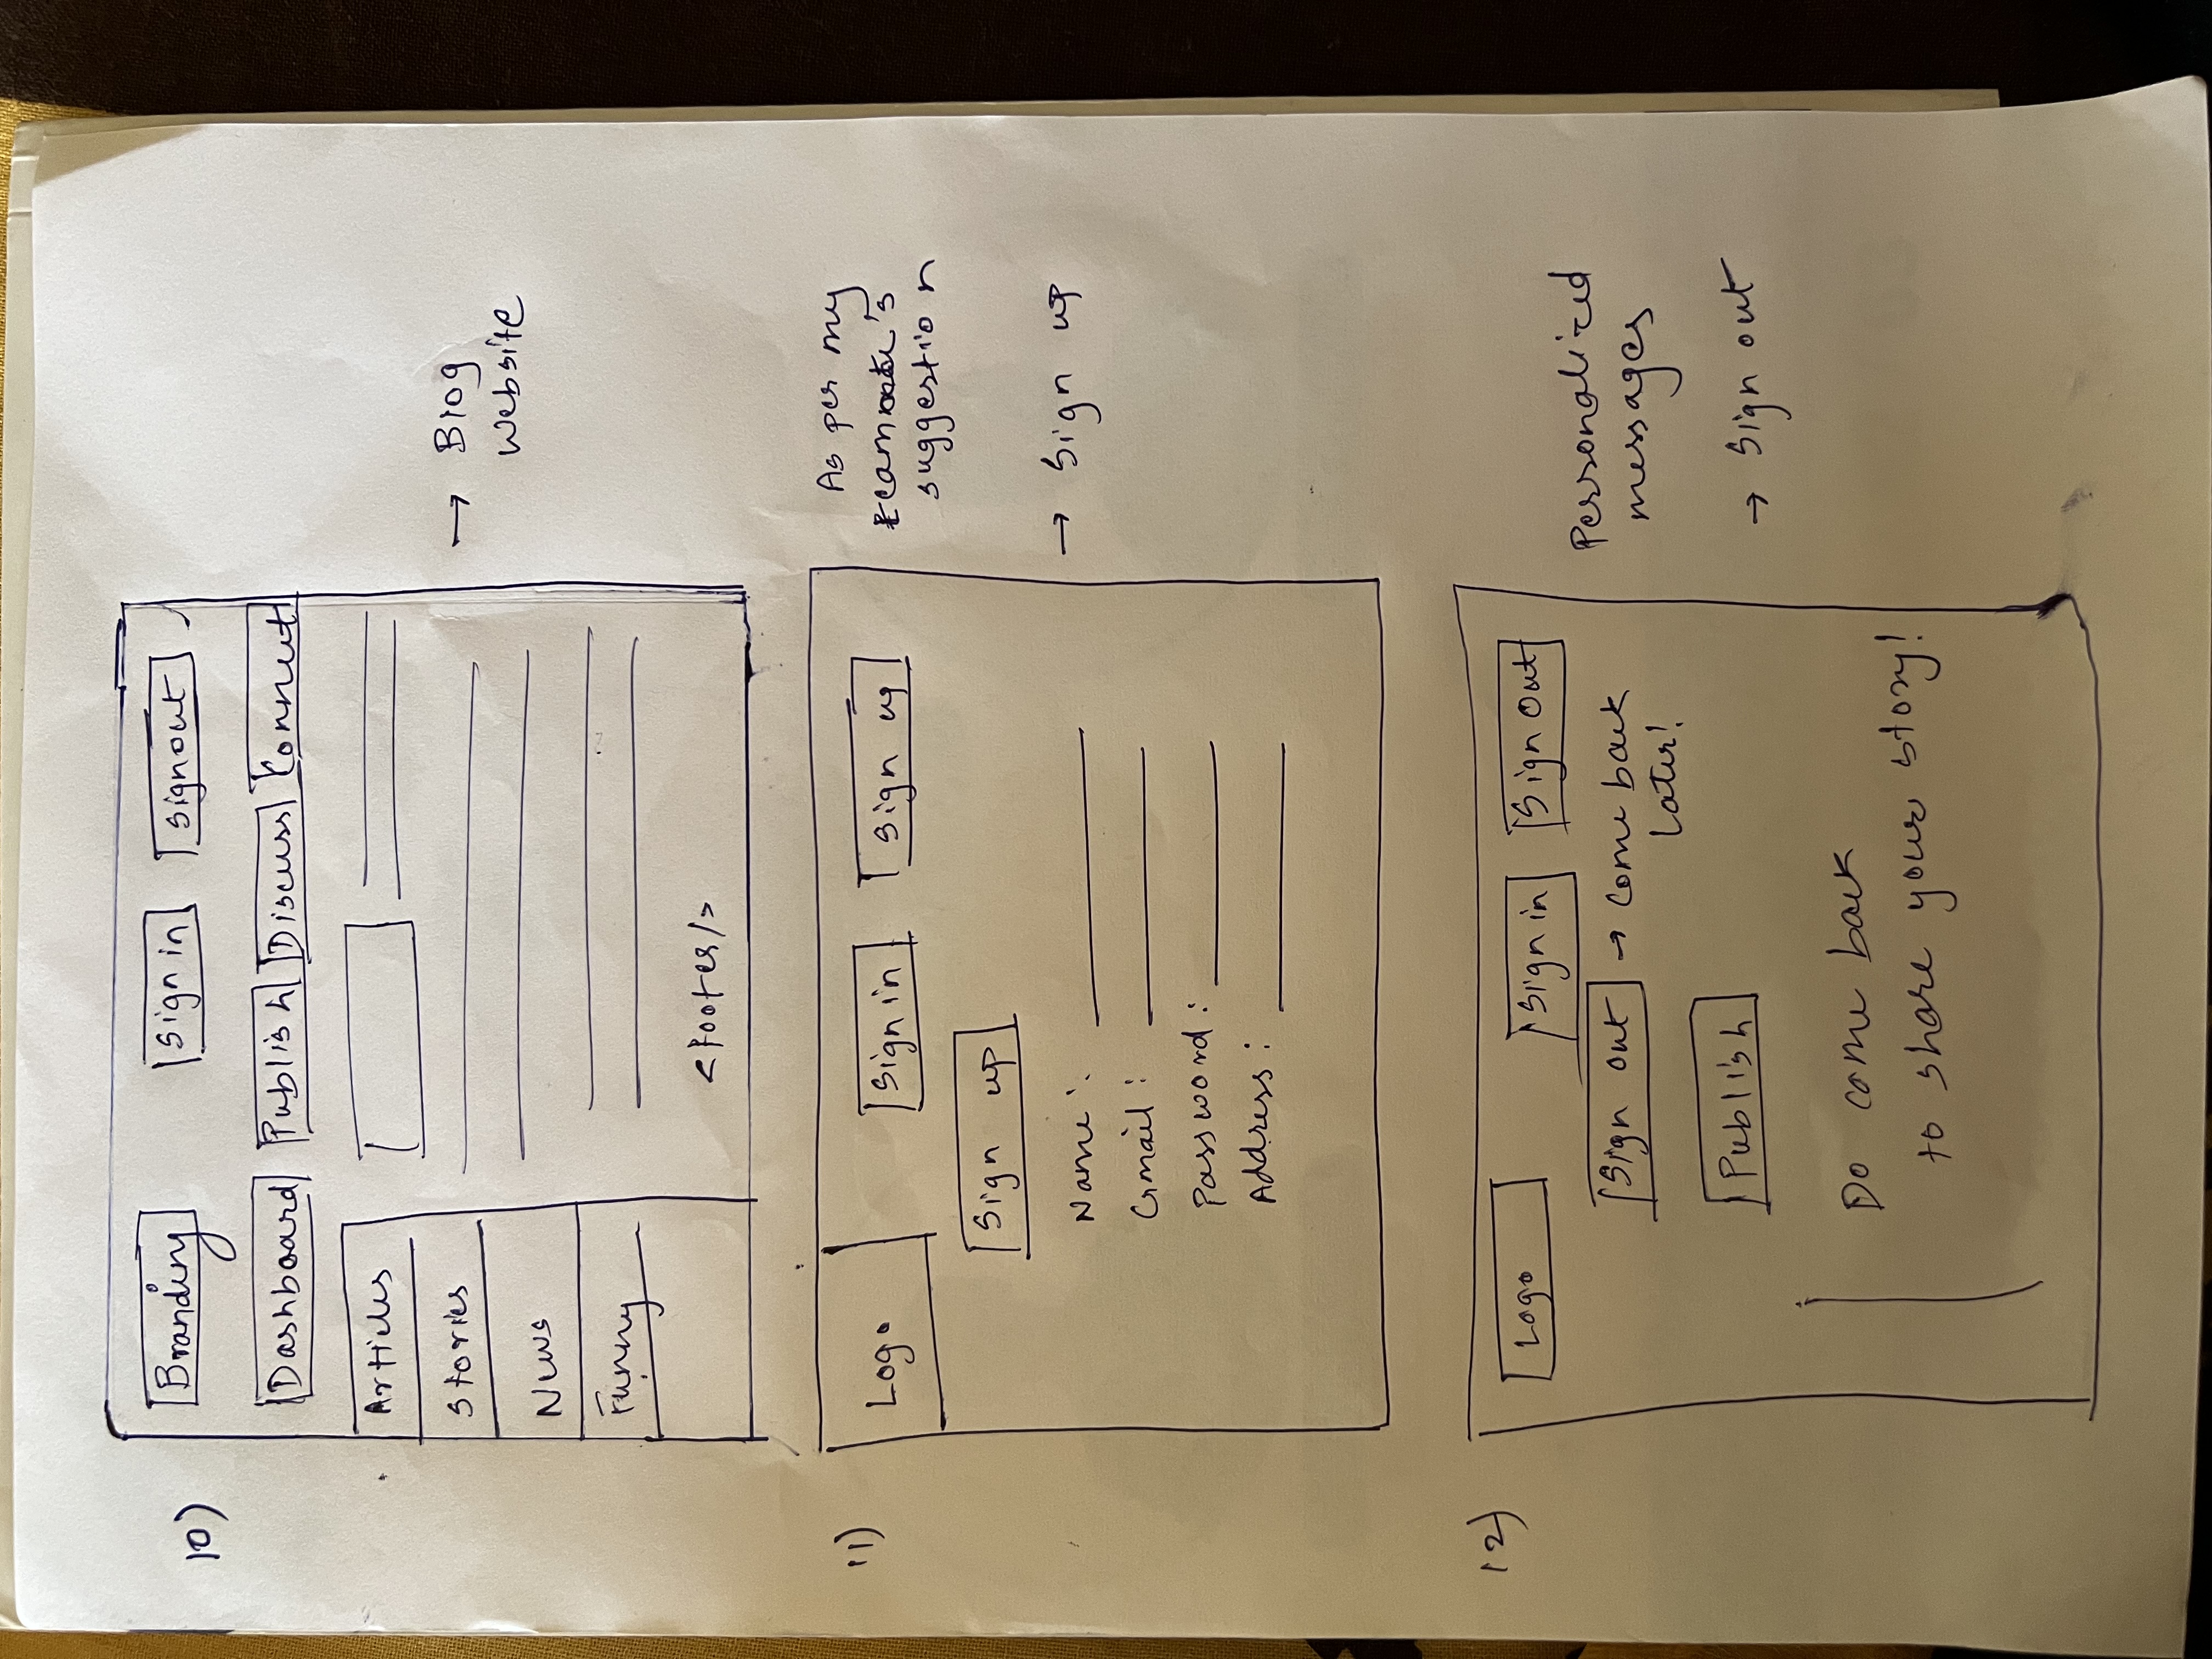 10)
Branding
Sign in
Signout
Dashboard
Publish
Discuss
Connect
Articles
Stories
News
Funny
<Footer/>
→ Blog
Website
11)
Logo
Sign in
Sign up
Sign up
Name :
Gmail :
Password :
Address :
As per my
teammate's
suggestion
→ Sign up
12)
Logo
Sign in
Sign Out
Sign out → Come back
Later!
Publish
Do come back
to share your story!
Personalized
messages
→ Sign out